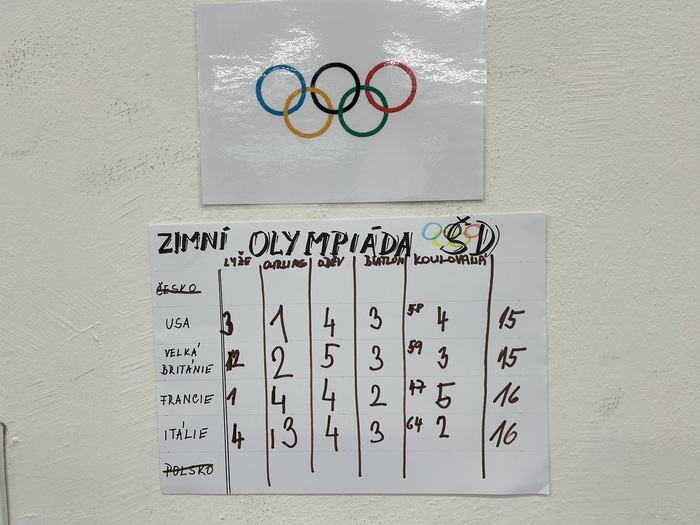 ZIMNÍ OLYMPIÁDA ŠD
LYŽE CURLING ODĚV BIATLON KOULOVANÁ
ČESKO
USA 3 1 4 3 58 4 15
VELKÁ BRITÁNIE 2 2 5 3 59 3 15
FRANCIE 1 4 4 2 47 5 16
ITÁLIE 4 3 4 3 64 2 16
POLSKO